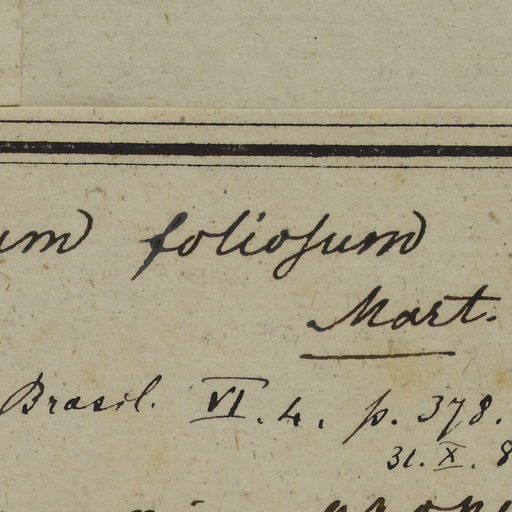 um foliosum
Mart.
Brasil. VI. 4. p. 378.
31. X. 8